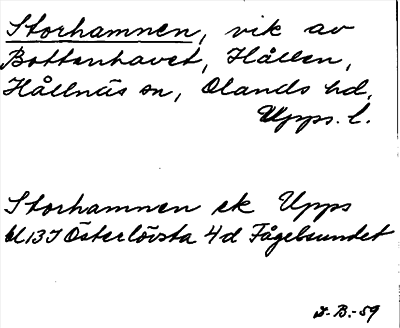 Storhamnen, vik av
Bottenhavet, Hållen,
Hållnäs sn, Olands hd,
Upps. l.
Storhamnen ek Upps
U13J Österlövsta 4d Fågelsundet
J.B.-59